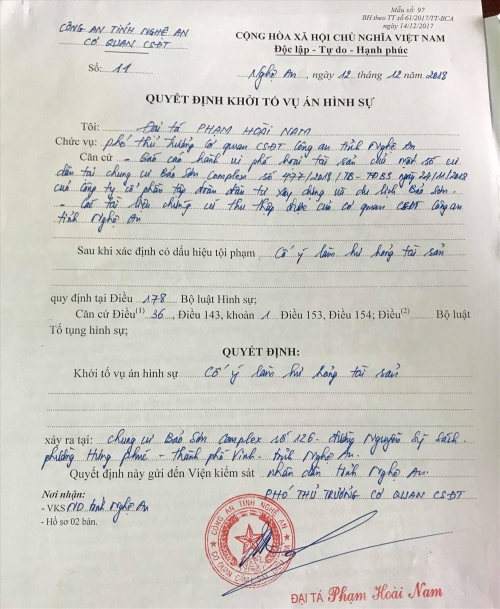 Mẫu số: 97
BH theo TT số 61/2017/TT-BCA
ngày 14/12/2017
CÔNG AN TỈNH NGHỆ AN
CƠ QUAN CSĐT
CỘNG HÒA XÃ HỘI CHỦ NGHĨA VIỆT NAM
Độc lập - Tự do - Hạnh phúc
Số: 11
Nghệ An, ngày 12 tháng 12 năm 2018
QUYẾT ĐỊNH KHỞI TỐ VỤ ÁN HÌNH SỰ
Tôi: Đại tá PHẠM HOÀI NAM
Chức vụ: phó thủ trưởng Cơ quan CSĐT Công an tỉnh Nghệ An
Căn cứ - Báo cáo hành vi phá hoại tài sản của một số cư
dân tại chung cư Bảo Sơn Complex số 477/2018/TB-TĐBS ngày 24/11/2018
của Công ty cổ phần tập đoàn đầu tư xây dựng và du lịch Bảo Sơn.
- Các tài liệu chứng cứ thu thập được của cơ quan CSĐT Công an
tỉnh Nghệ An
Sau khi xác định có dấu hiệu tội phạm Cố ý làm hư hỏng tài sản
quy định tại Điều 178 Bộ luật Hình sự;
Căn cứ Điều(1) 36, Điều 143, khoản 1 Điều 153, Điều 154; Điều(2) Bộ luật
Tố tụng hình sự;
QUYẾT ĐỊNH:
Khởi tố vụ án hình sự Cố ý làm hư hỏng tài sản
xảy ra tại: chung cư Bảo Sơn Complex số 126 - đường Nguyễn Sỹ Sách -
phường Hưng Phúc - Thành phố Vinh - tỉnh Nghệ An.
Quyết định này gửi đến Viện kiểm sát nhân dân tỉnh Nghệ An.
Nơi nhận:
- VKSND tỉnh Nghệ An
- Hồ sơ 02 bản.
PHÓ THỦ TRƯỞNG CƠ QUAN CSĐT
CÔNG AN TỈNH NGHỆ AN
CƠ QUAN CẢNH SÁT
ĐẠI TÁ Phạm Hoài Nam